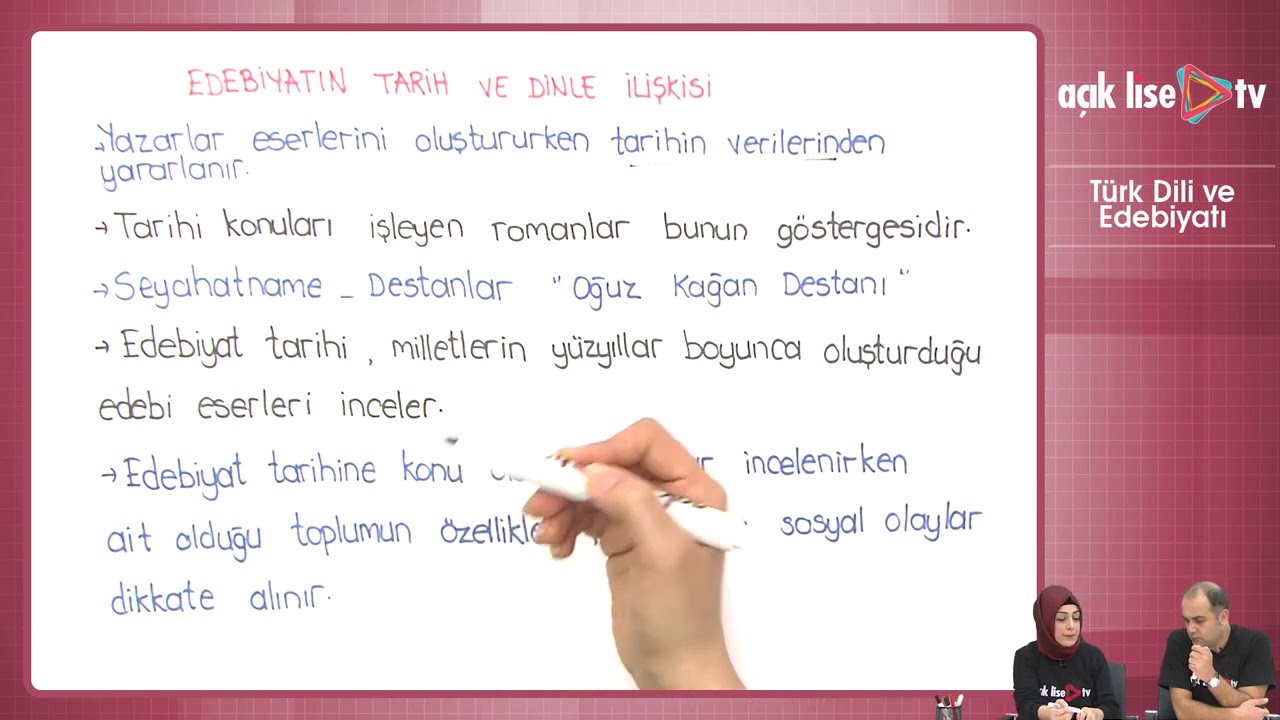 EDEBİYATIN TARİH VE DİNLE İLİŞKİSİ
→Yazarlar eserlerini oluştururken tarihin verilerinden
yararlanır.
→Tarihi konuları işleyen romanlar bunun göstergesidir.
→Seyahatname - Destanlar "Oğuz Kağan Destanı"
→Edebiyat tarihi, milletlerin yüzyıllar boyunca oluşturduğu
edebi eserleri inceler.
→Edebiyat tarihine konu incelenirken
ait olduğu toplumun sosyal olaylar
dikkate alınır.
açık lise tv
Türk Dili ve
Edebiyatı
açık lise tv